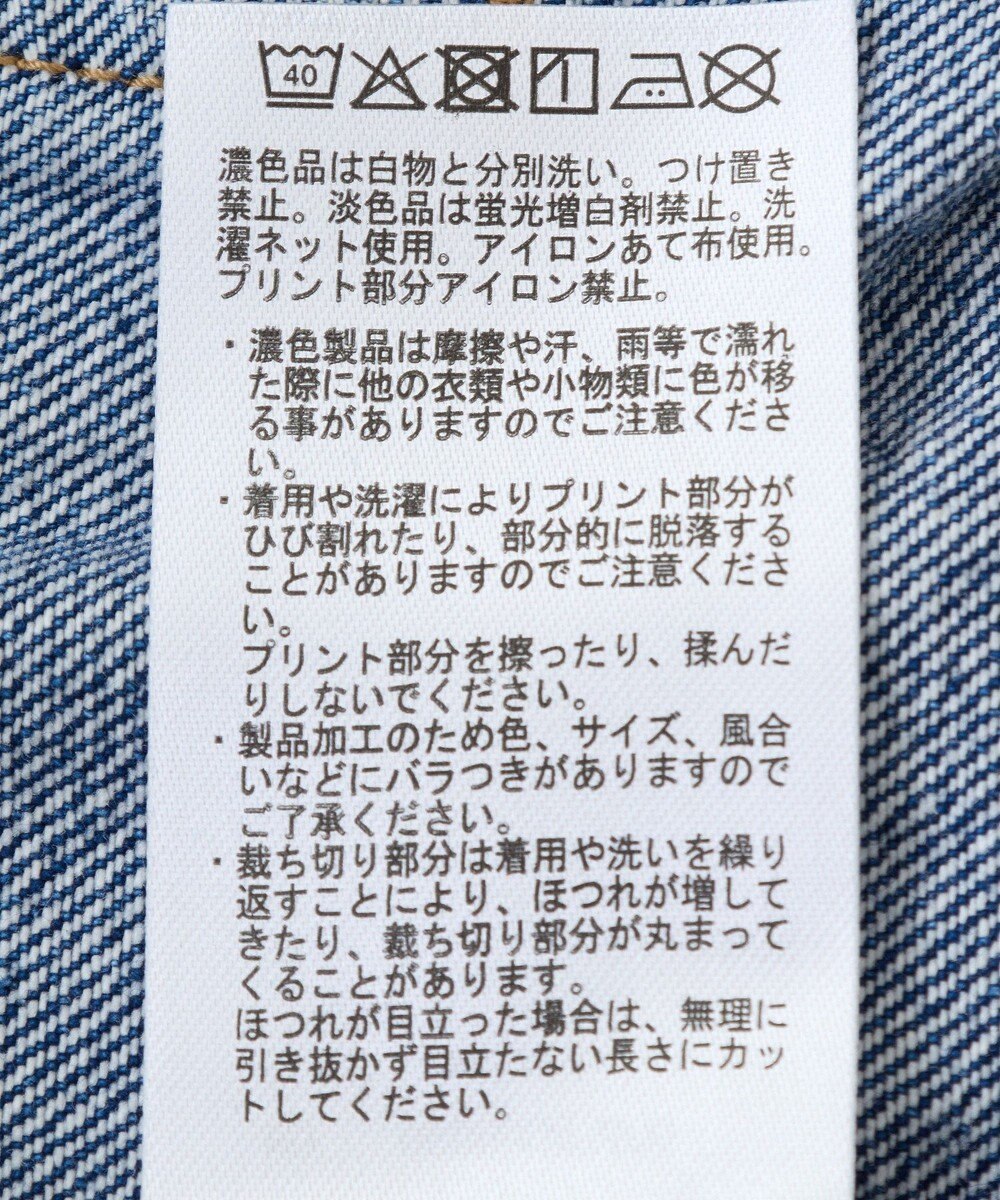 40
濃色品は白物と分別洗い。つけ置き
禁止。淡色品は蛍光増白剤禁止。洗
濯ネット使用。アイロンあて布使用。
プリント部分アイロン禁止。
・濃色製品は摩擦や汗、雨等で濡れ
た際に他の衣類や小物類に色が移
る事がありますのでご注意くださ
い。
・着用や洗濯によりプリント部分が
ひび割れたり、部分的に脱落する
ことがありますのでご注意くださ
い。
プリント部分を擦ったり、揉んだ
りしないでください。
・製品加工のため色、サイズ、風合
いなどにバラつきがありますので
ご了承ください。
・裁ち切り部分は着用や洗いを繰り
返すことにより、ほつれが増して
きたり、裁ち切り部分が丸まって
くることがあります。
ほつれが目立った場合は、無理に
引き抜かず目立たない長さにカッ
トしてください。